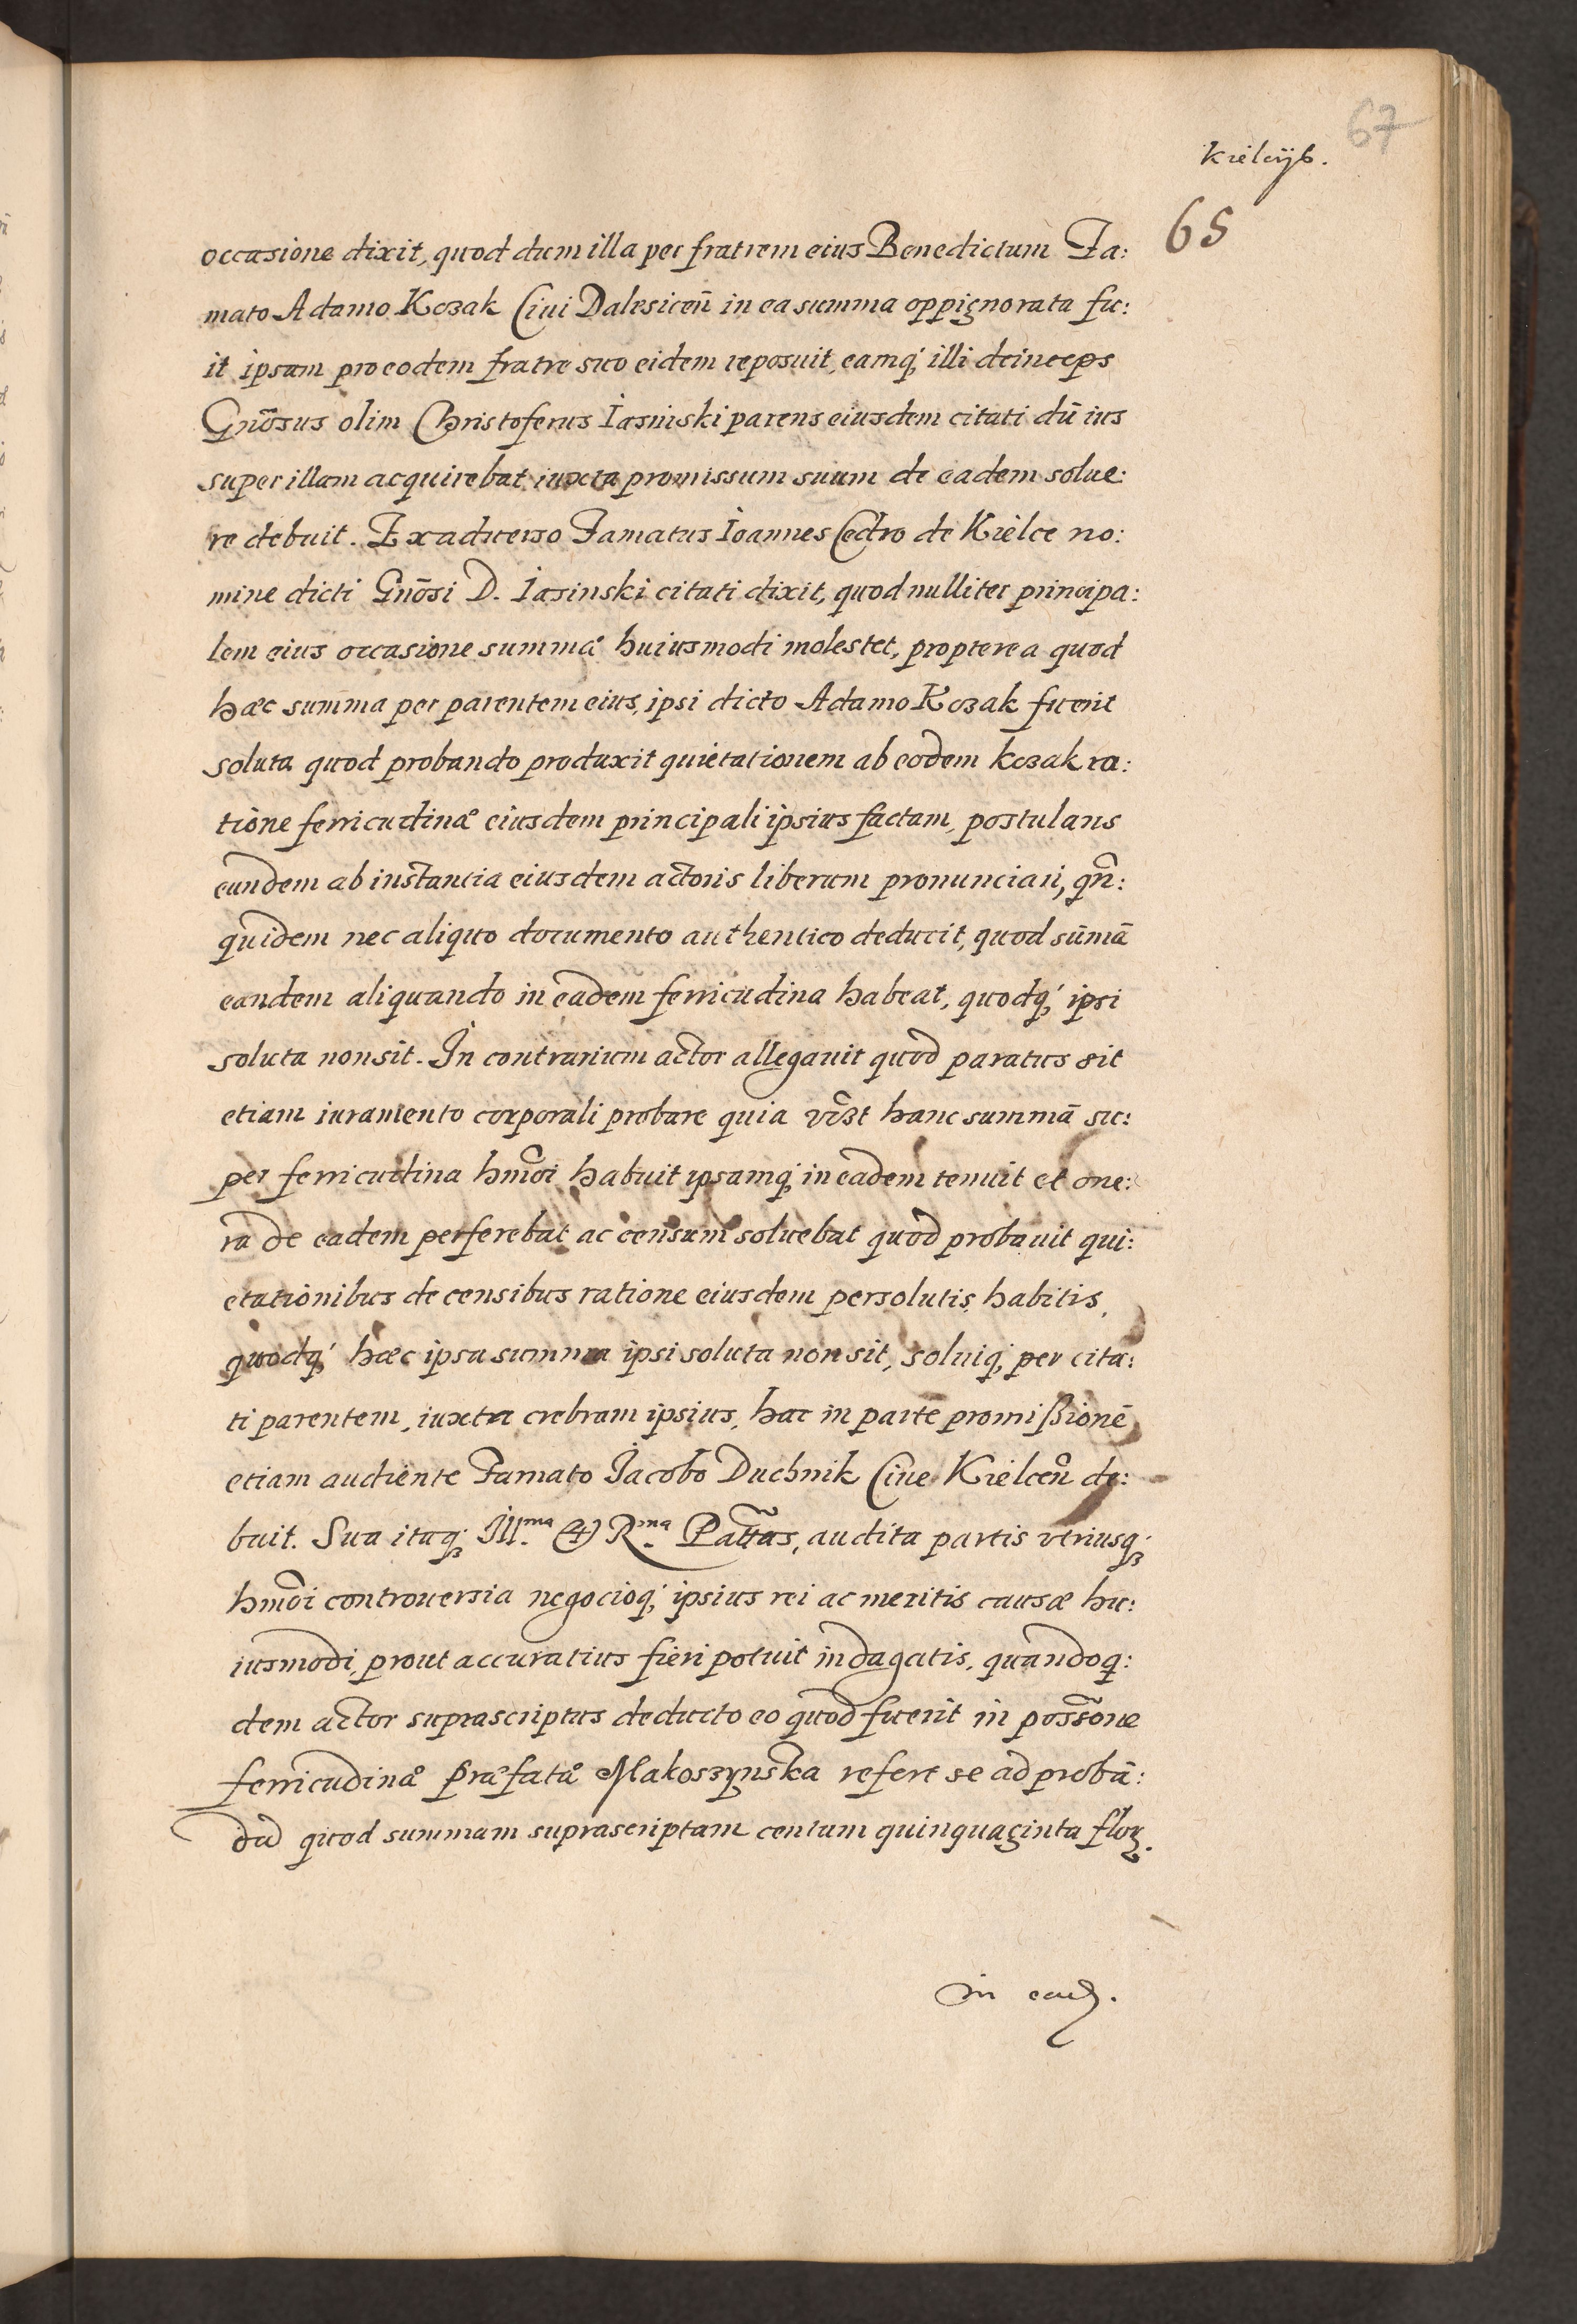 67
Kielcijs.
65
occasione dixit, quod dum illa per fratrem eius Benedictum Fa:
mato Adamo Kozak Ciui Dalesiceñ in ea summa oppignorata fu:
it ipsam pro eodem fratre suo eidem reposuit, eamq; illi deinceps
Gnõsus olim Christoferus Iasniski parens eiusdem citati dũ ius
super illam acquirebat iuxta promissum suum de eadem solue:
re debuit. Ex aduerso Famatus Ioannes Cedro de Kielce no:
mine dicti Gnõsi D. Iasinski citati dixit, quod nulliter principa:
lem eius occasione summæ huiusmodi molestet, propterea quod
hæc summa per parentem eius, ipsi dicto Adamo Kozak fuerit
soluta quod probando produxit quietationem ab eodem Kozak ra:
tione ferricudinæ eiusdem principali ipsius factam, postulans
eundem ab instantia eiusdem actoris liberum pronunciari, qñ:
quidem nec aliquo documento authentico deducit, quod sũmã
eandem aliquando in eadem ferricudina habeat, quodq; ipsi
soluta non sit. In contrarium actor allegauit quod paratus sit
etiam iuramento corporali probare quia vĩzt hanc summã su:
per ferricudina hmõi habuit ipsamq; in eadem tenuit et one:
ra de eadem perferebat ac censum soluebat quod probauit qui:
etationibus de censibus ratione eiusdem persolutis habitis,
quodq; hæc ipsa summa ipsi soluta non sit, soluiq; per cita:
ti parentem, iuxta crebram ipsius, hac in parte promißionẽ
etiam audiente Famato Iacobo Duchnik Ciue Kielceñ de:
buit. Sua itaq; Ill.ma et R.ma Pattas, audita partis vtriusq;
hmõi controuersia negocioq; ipsius rei ac meritis causæ hu:
iusmodi, prout accuratius fieri potuit indagatis, quandoq:
dem actor suprascriptus deducto eo quod fuerit in possõne
ferricudinæ præfatæ Makoszynska refert se ad probã:
dũ quod summam suprascriptam centum quinquaginta flor.
in ead.